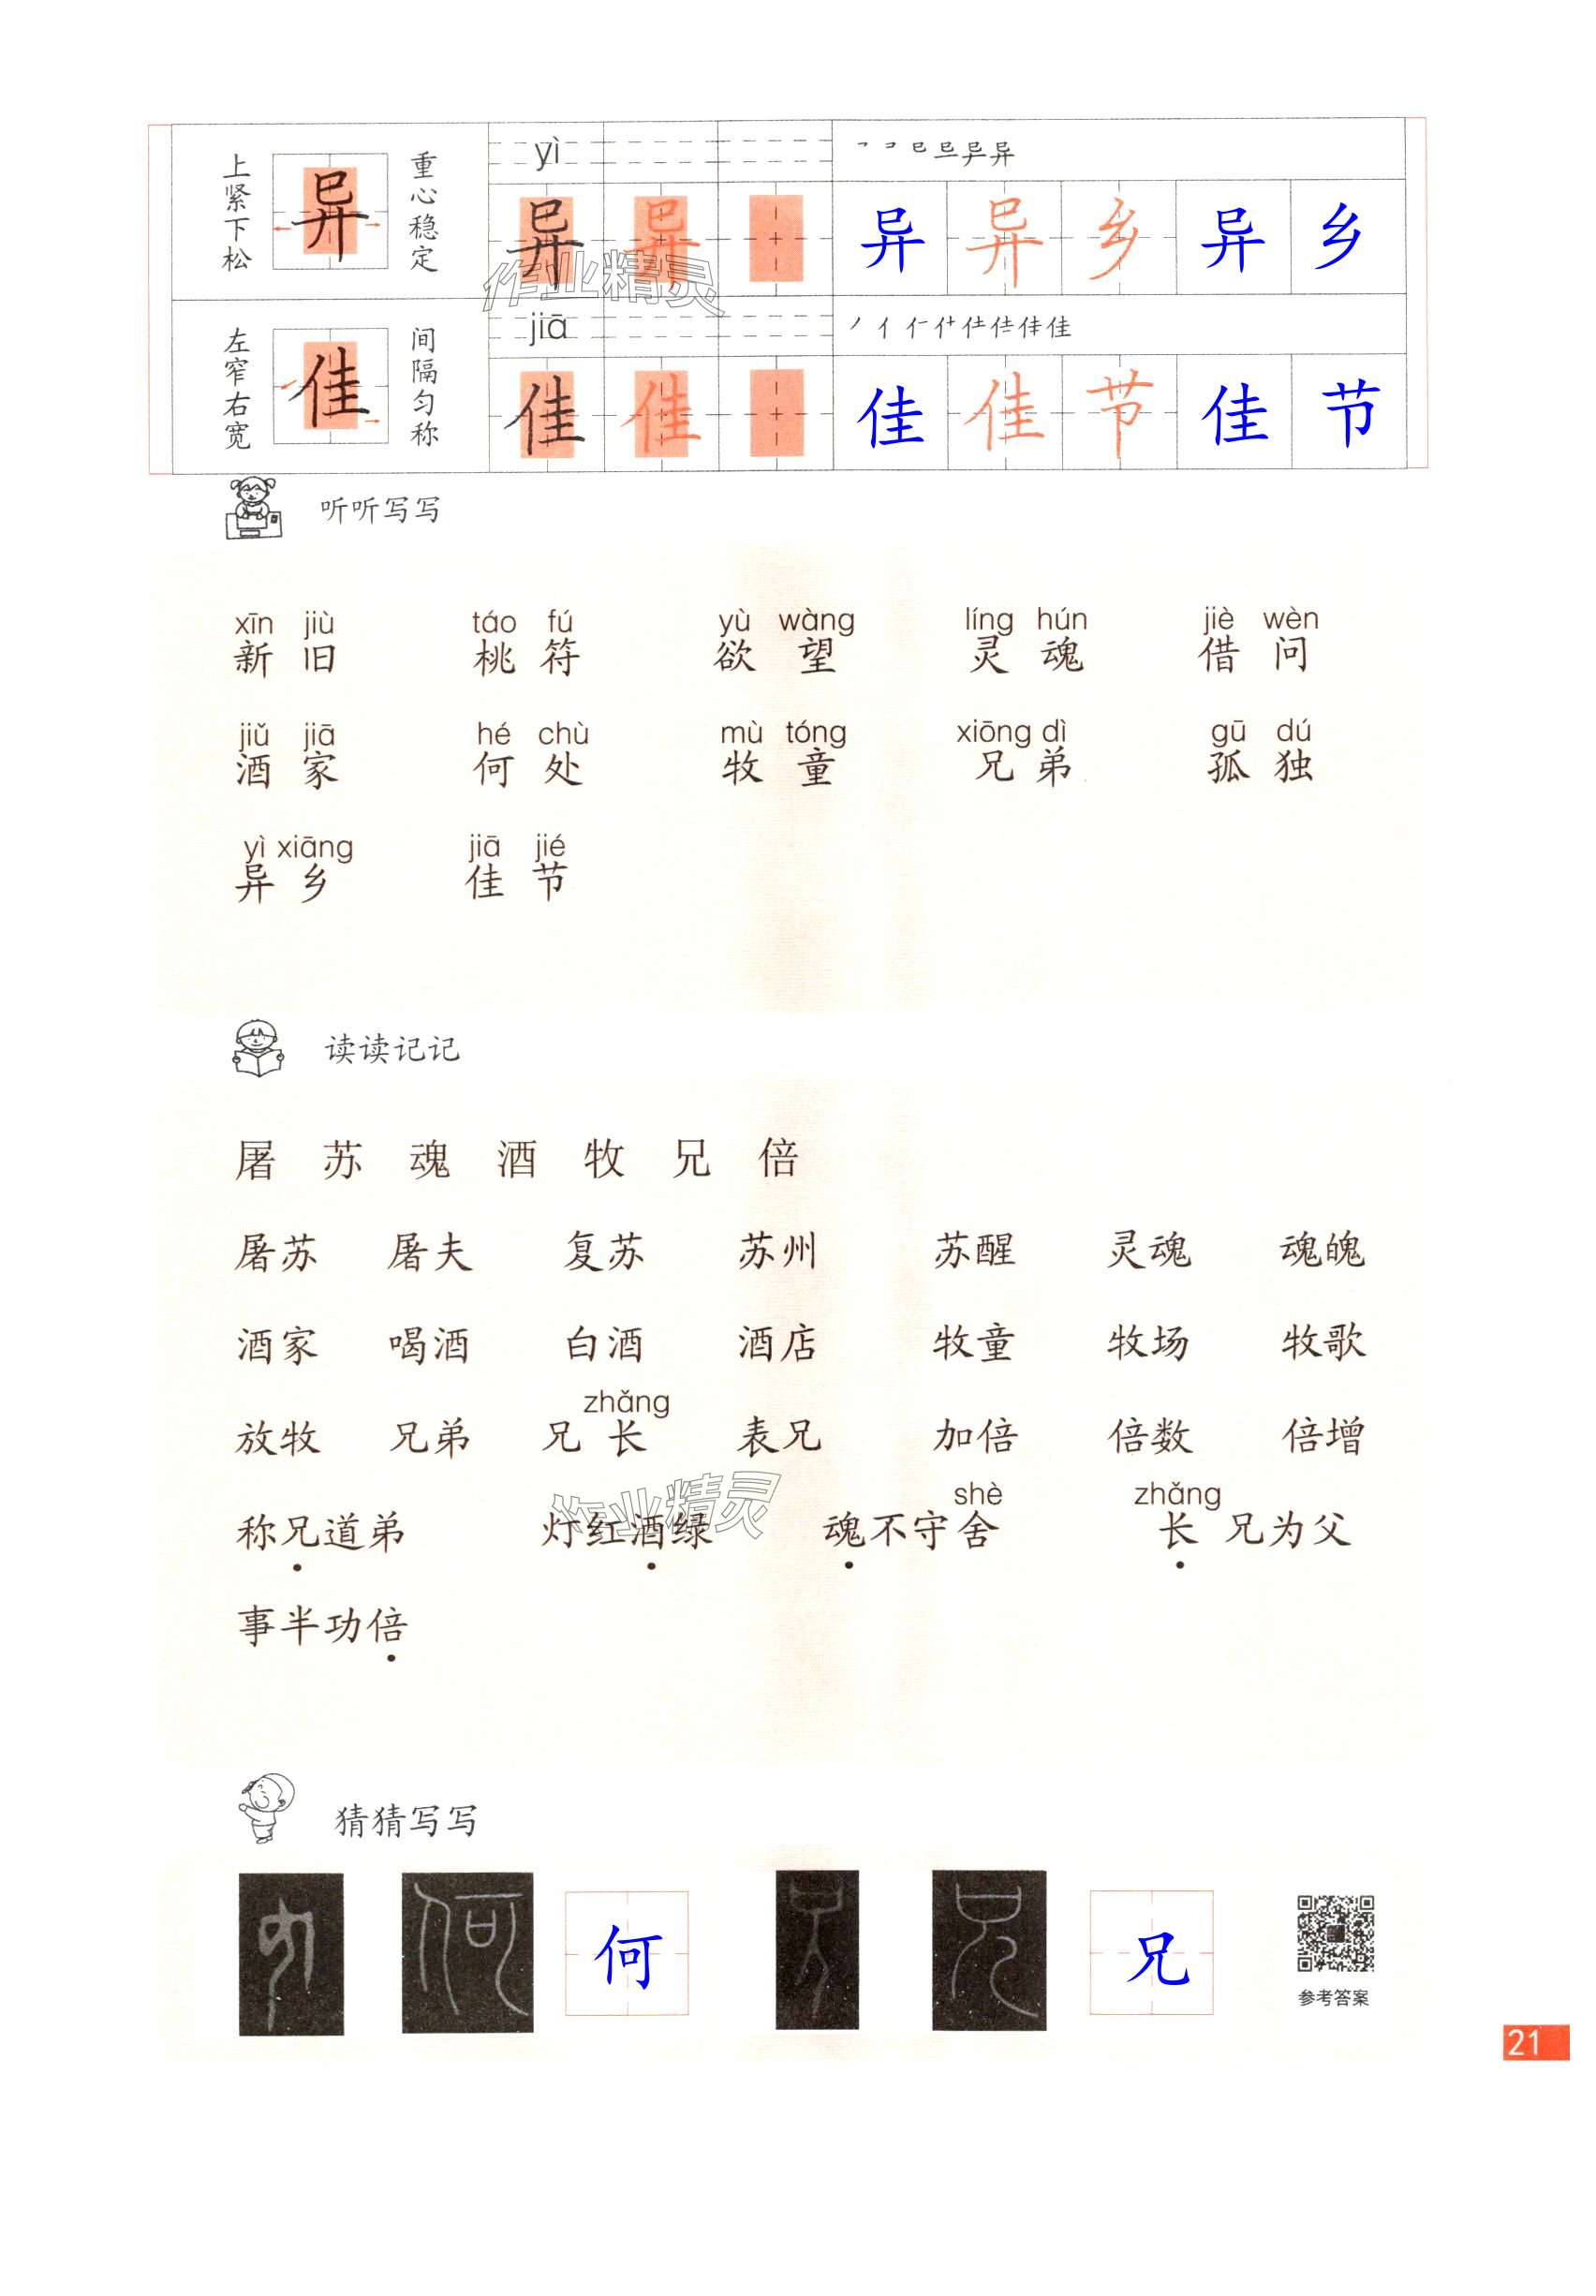 上紧下松 异 重心稳定
yì
异 异 异 异 乡 异 乡
左窄右宽 佳 间隔匀称
jiā
丿 亻 佳
佳 佳 佳 佳 节 佳 节
作业精灵
听听写写
xīn jiù táo fú yù wàng líng hún jiè wèn
新 旧 桃 符 欲 望 灵 魂 借 问
jiǔ jiā hé chù mù tóng xiōng dì gū dú
酒 家 何 处 牧 童 兄 弟 孤 独
yì xiāng jiā jié
异 乡 佳 节
读读记记
屠 苏 魂 酒 牧 兄 倍
屠苏 屠夫 复苏 苏州 苏醒 灵魂 魂魄
酒家 喝酒 白酒 酒店 牧童 牧场 牧歌
zhǎng
放牧 兄弟 兄 长 表兄 加倍 倍数 倍增
作业精灵
shè zhǎng
称兄道弟 灯红酒绿 魂不守舍 长 兄为父
事半功倍
猜猜写写
何 何 兄 兄
参考答案
21